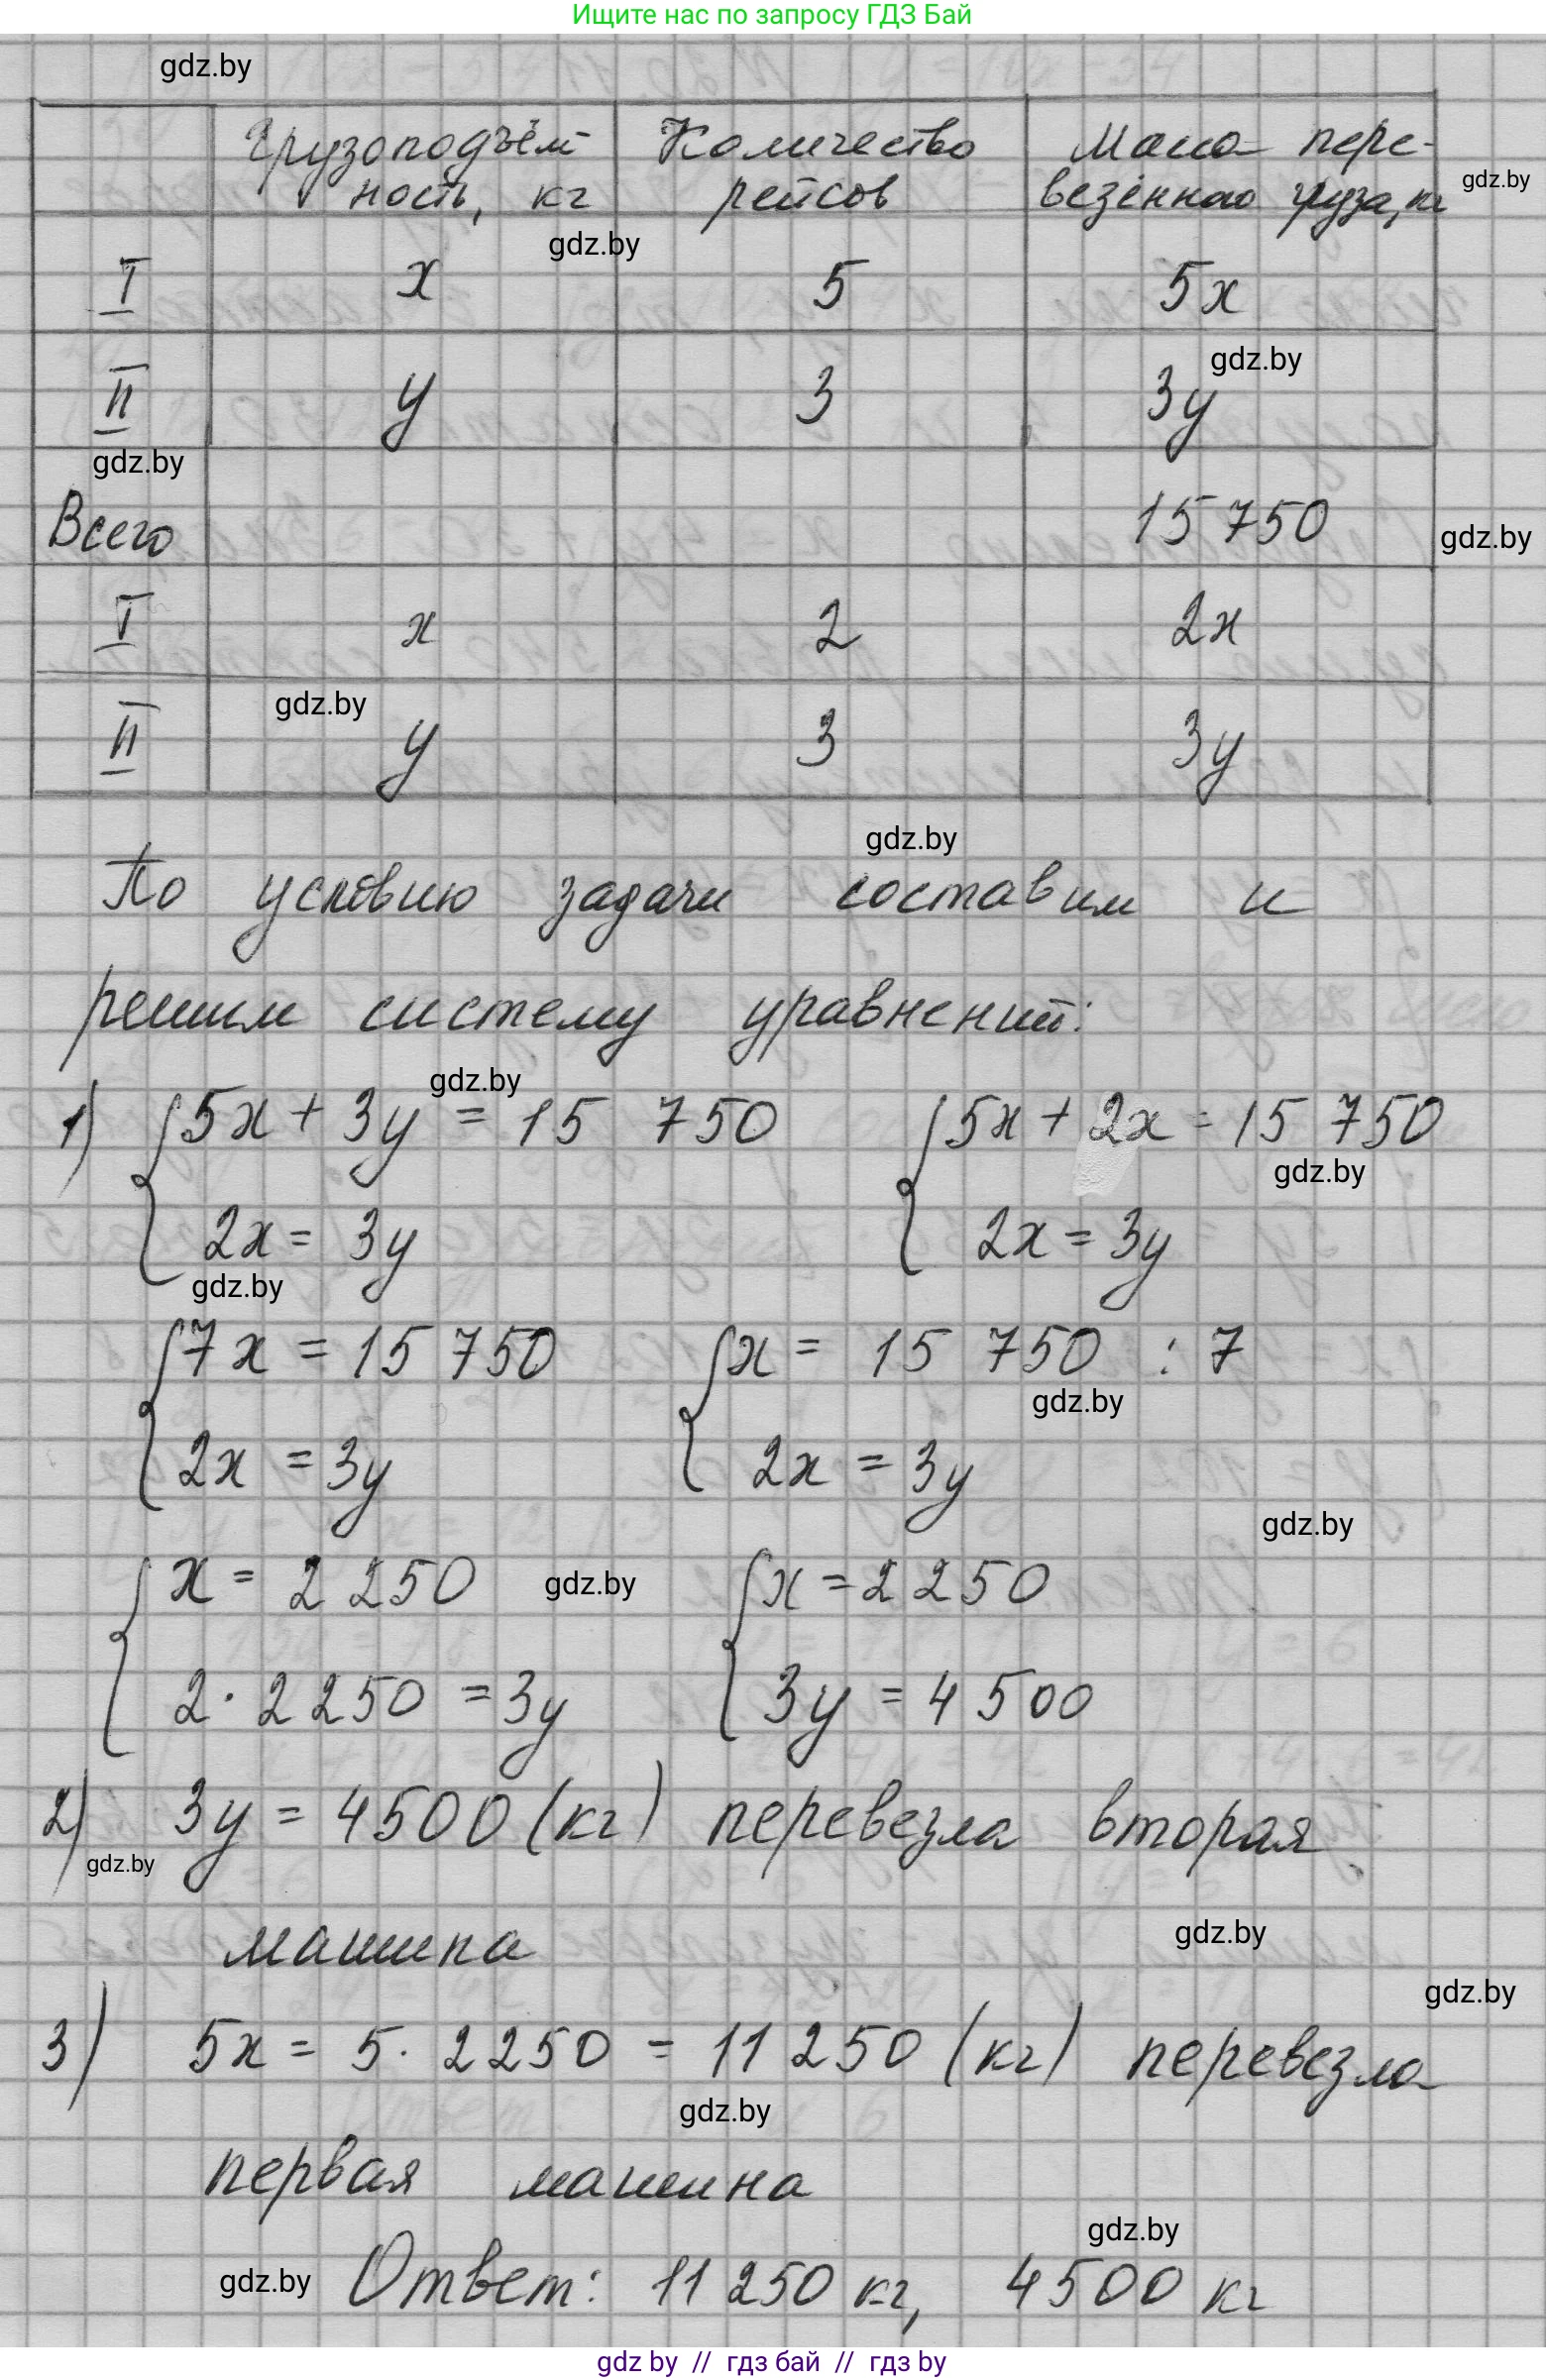 Ищите нас по запросу ГДЗ Бай
gdz.by
Грузоподъём- Количество Масса пере-
ность, кг рейсов везённого груза, кг gdz.by
gdz.by
I x 5 5x
gdz.by
II y 3 3y
gdz.by
Всего 15 750 gdz.by
I x 2 2x
gdz.by
II y 3 3y
gdz.by
По условию задачи составим и
решим систему уравнений:
gdz.by
1) { 5x + 3y = 15 750 { 5x + 2x = 15 750
gdz.by
2x = 3y 2x = 3y
gdz.by
{ 7x = 15 750 { x = 15 750 : 7
gdz.by
2x = 3y 2x = 3y
gdz.by
{ x = 2 250 gdz.by { x = 2 250
2 · 2 250 = 3y 3y = 4 500
2) 3y = 4500 (кг) перевезла вторая
gdz.by
машина gdz.by
gdz.by
3) 5x = 5 · 2250 = 11 250 (кг) перевезла
gdz.by
первая машина
gdz.by
gdz.by Ответ: 11 250 кг, 4500 кг
gdz by // гдз бай // гдз by